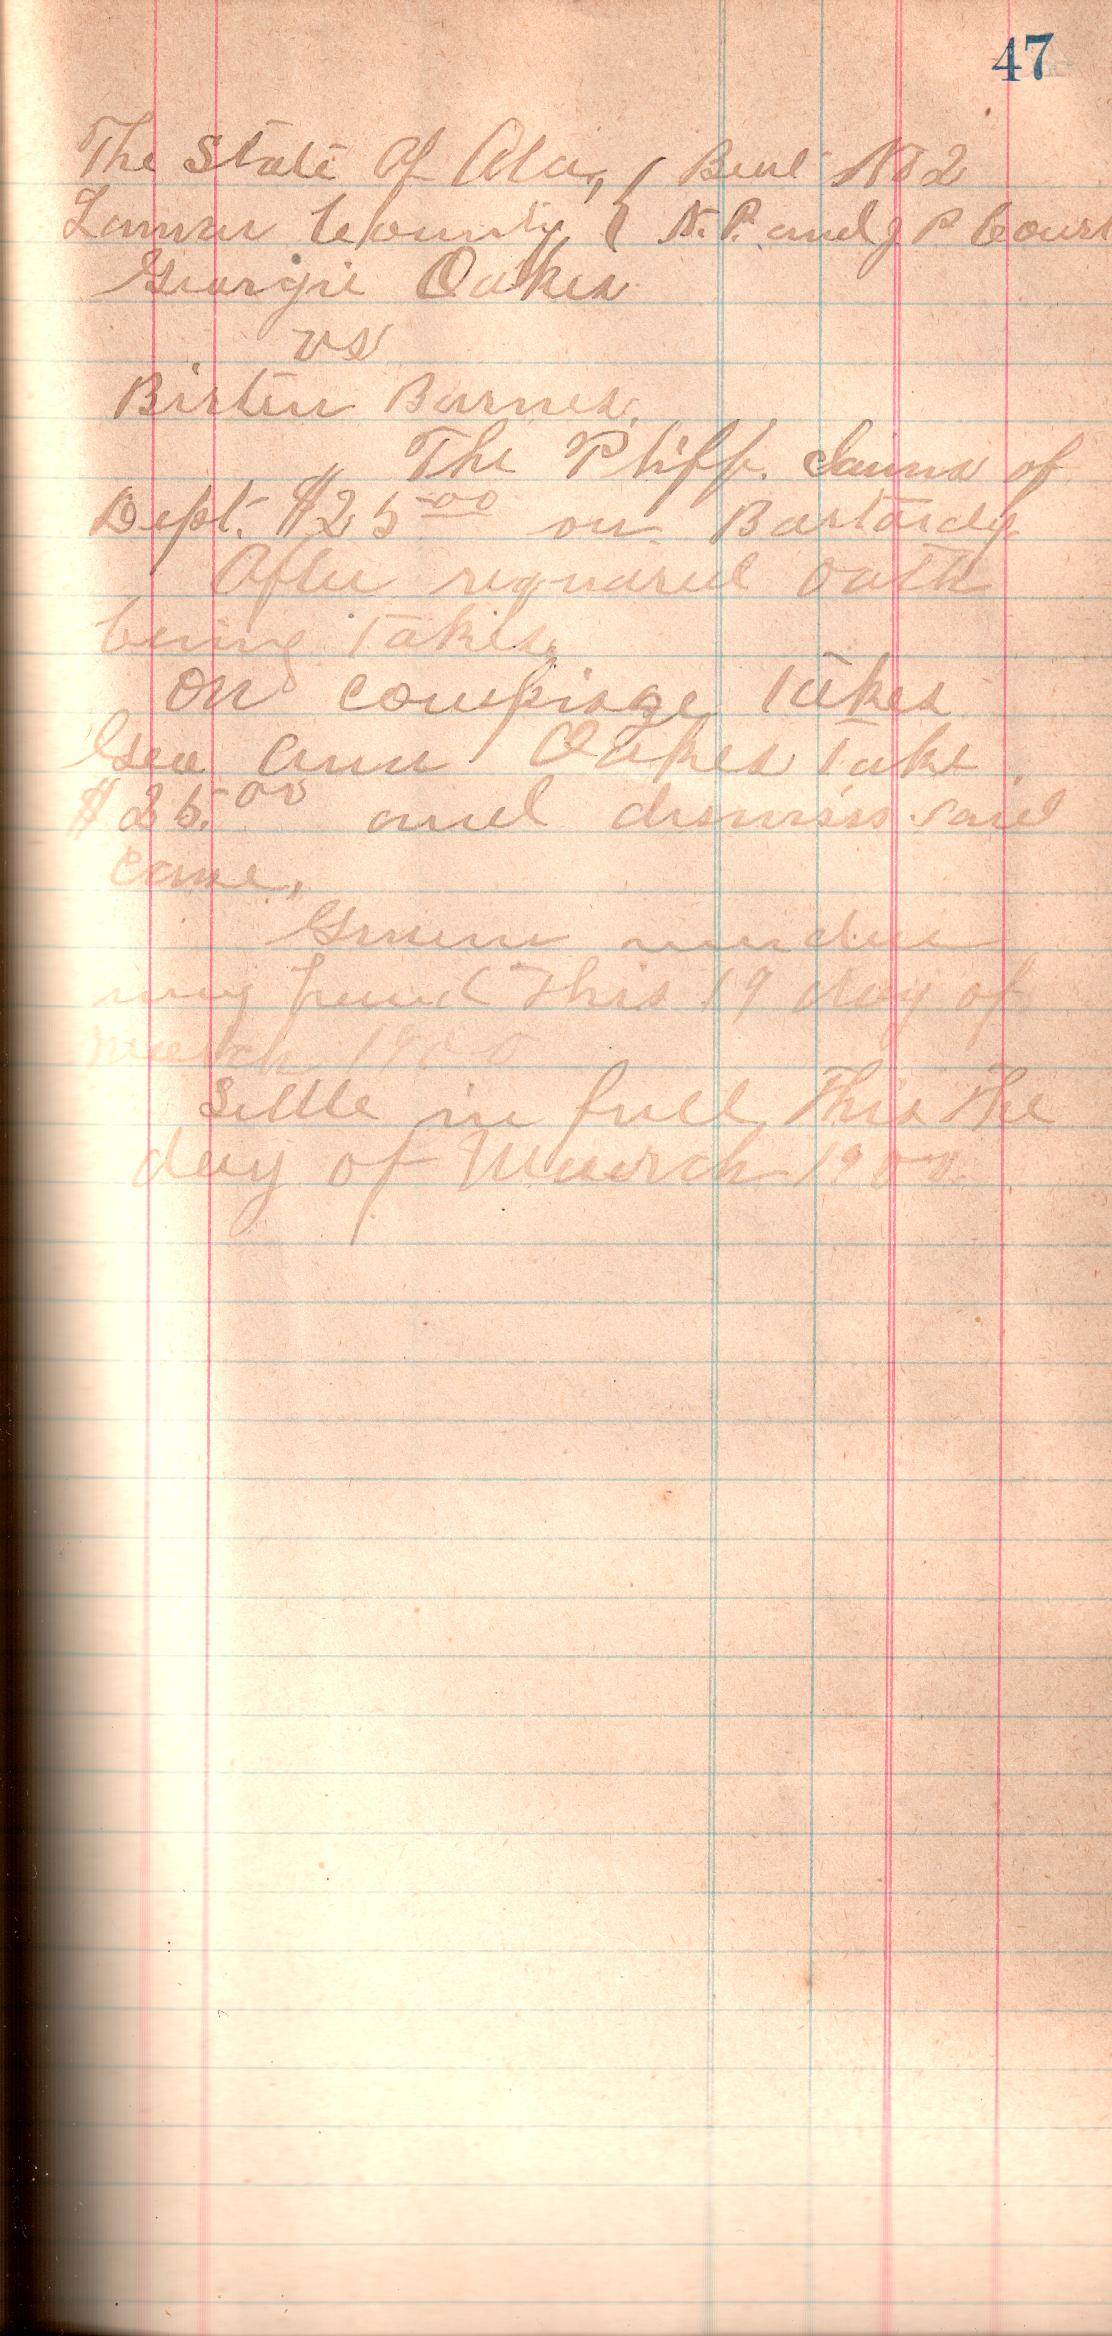 47
The State Of Ala, { Beat No 2
Lamar County { N. P. and J P Court
Georgie Oakes
vs
Birten Barnes.
The Pltff. Claims of
Deft. $25.00 on Bastardy
After required oath
being taken
on takes
Geo Ann Oakes take
$25.00 and dismiss said
case.
Given under
my hand This 19 day of
March 1900
Settle in full This the
day of March 1900.